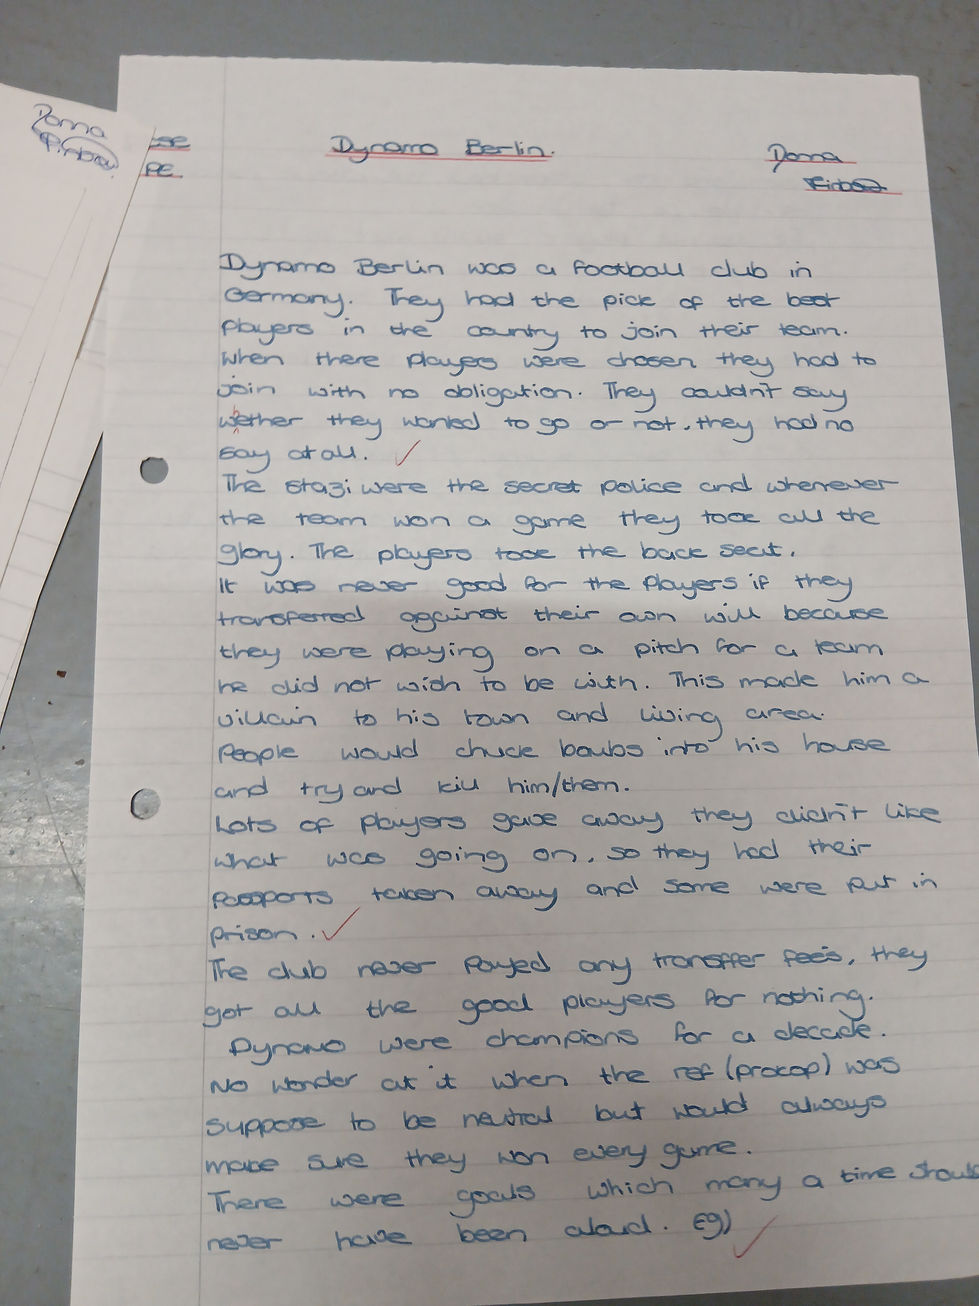 Donna
PE
Dynamo Berlin.
Donna
Dynamo Berlin was a football club in
Germany. They had the pick of the best
players in the country to join their team.
When there players were chosen they had to
join with no obligation. They couldn't say
wether they wanted to go or not, they had no
say at all.
The stazi were the secret police and whenever
the team won a game they took all the
glory. The players took the back seat.
It was never good for the players if they
transferred against their own will because
they were playing on a pitch for a team
he did not wich to be with. This made him a
villain to his town and living area.
People would chuck bombs into his house
and try and kill him/them.
Lots of players gave away they didn't like
what was going on, so they had their
passports taken away and some were put in
prison.
The club never payed any transffer fee's, they
got all the good players for nothing.
Dynamo were champions for a decade.
No wonder at it when the ref (procop) was
suppose to be neutral but would always
make sure they won every game.
There were goals which many a time should
never have been aloud. Eg)